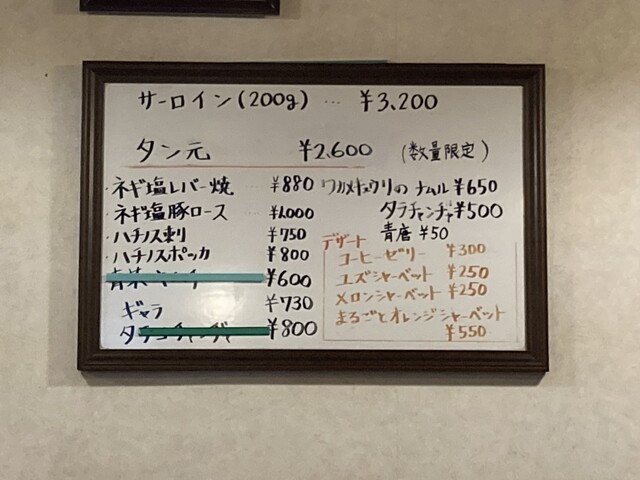 サーロイン(200g) … ¥3,200
タン元 ¥2,600 (数量限定)
・ネギ塩レバー焼 … ¥880
・ネギ塩豚ロース ¥1,000
・ハチノス刺 ¥750
・ハチノスポッカ ¥800
¥600
ギャラ ¥730
¥800
ワカメキュウリの ナムル ¥650
タラチャンヂャ ¥500
青唐 ¥50
デザート
コーヒーゼリー ¥300
ユズシャーベット ¥250
メロンシャーベット ¥250
まるごとオレンジシャーベット
¥550